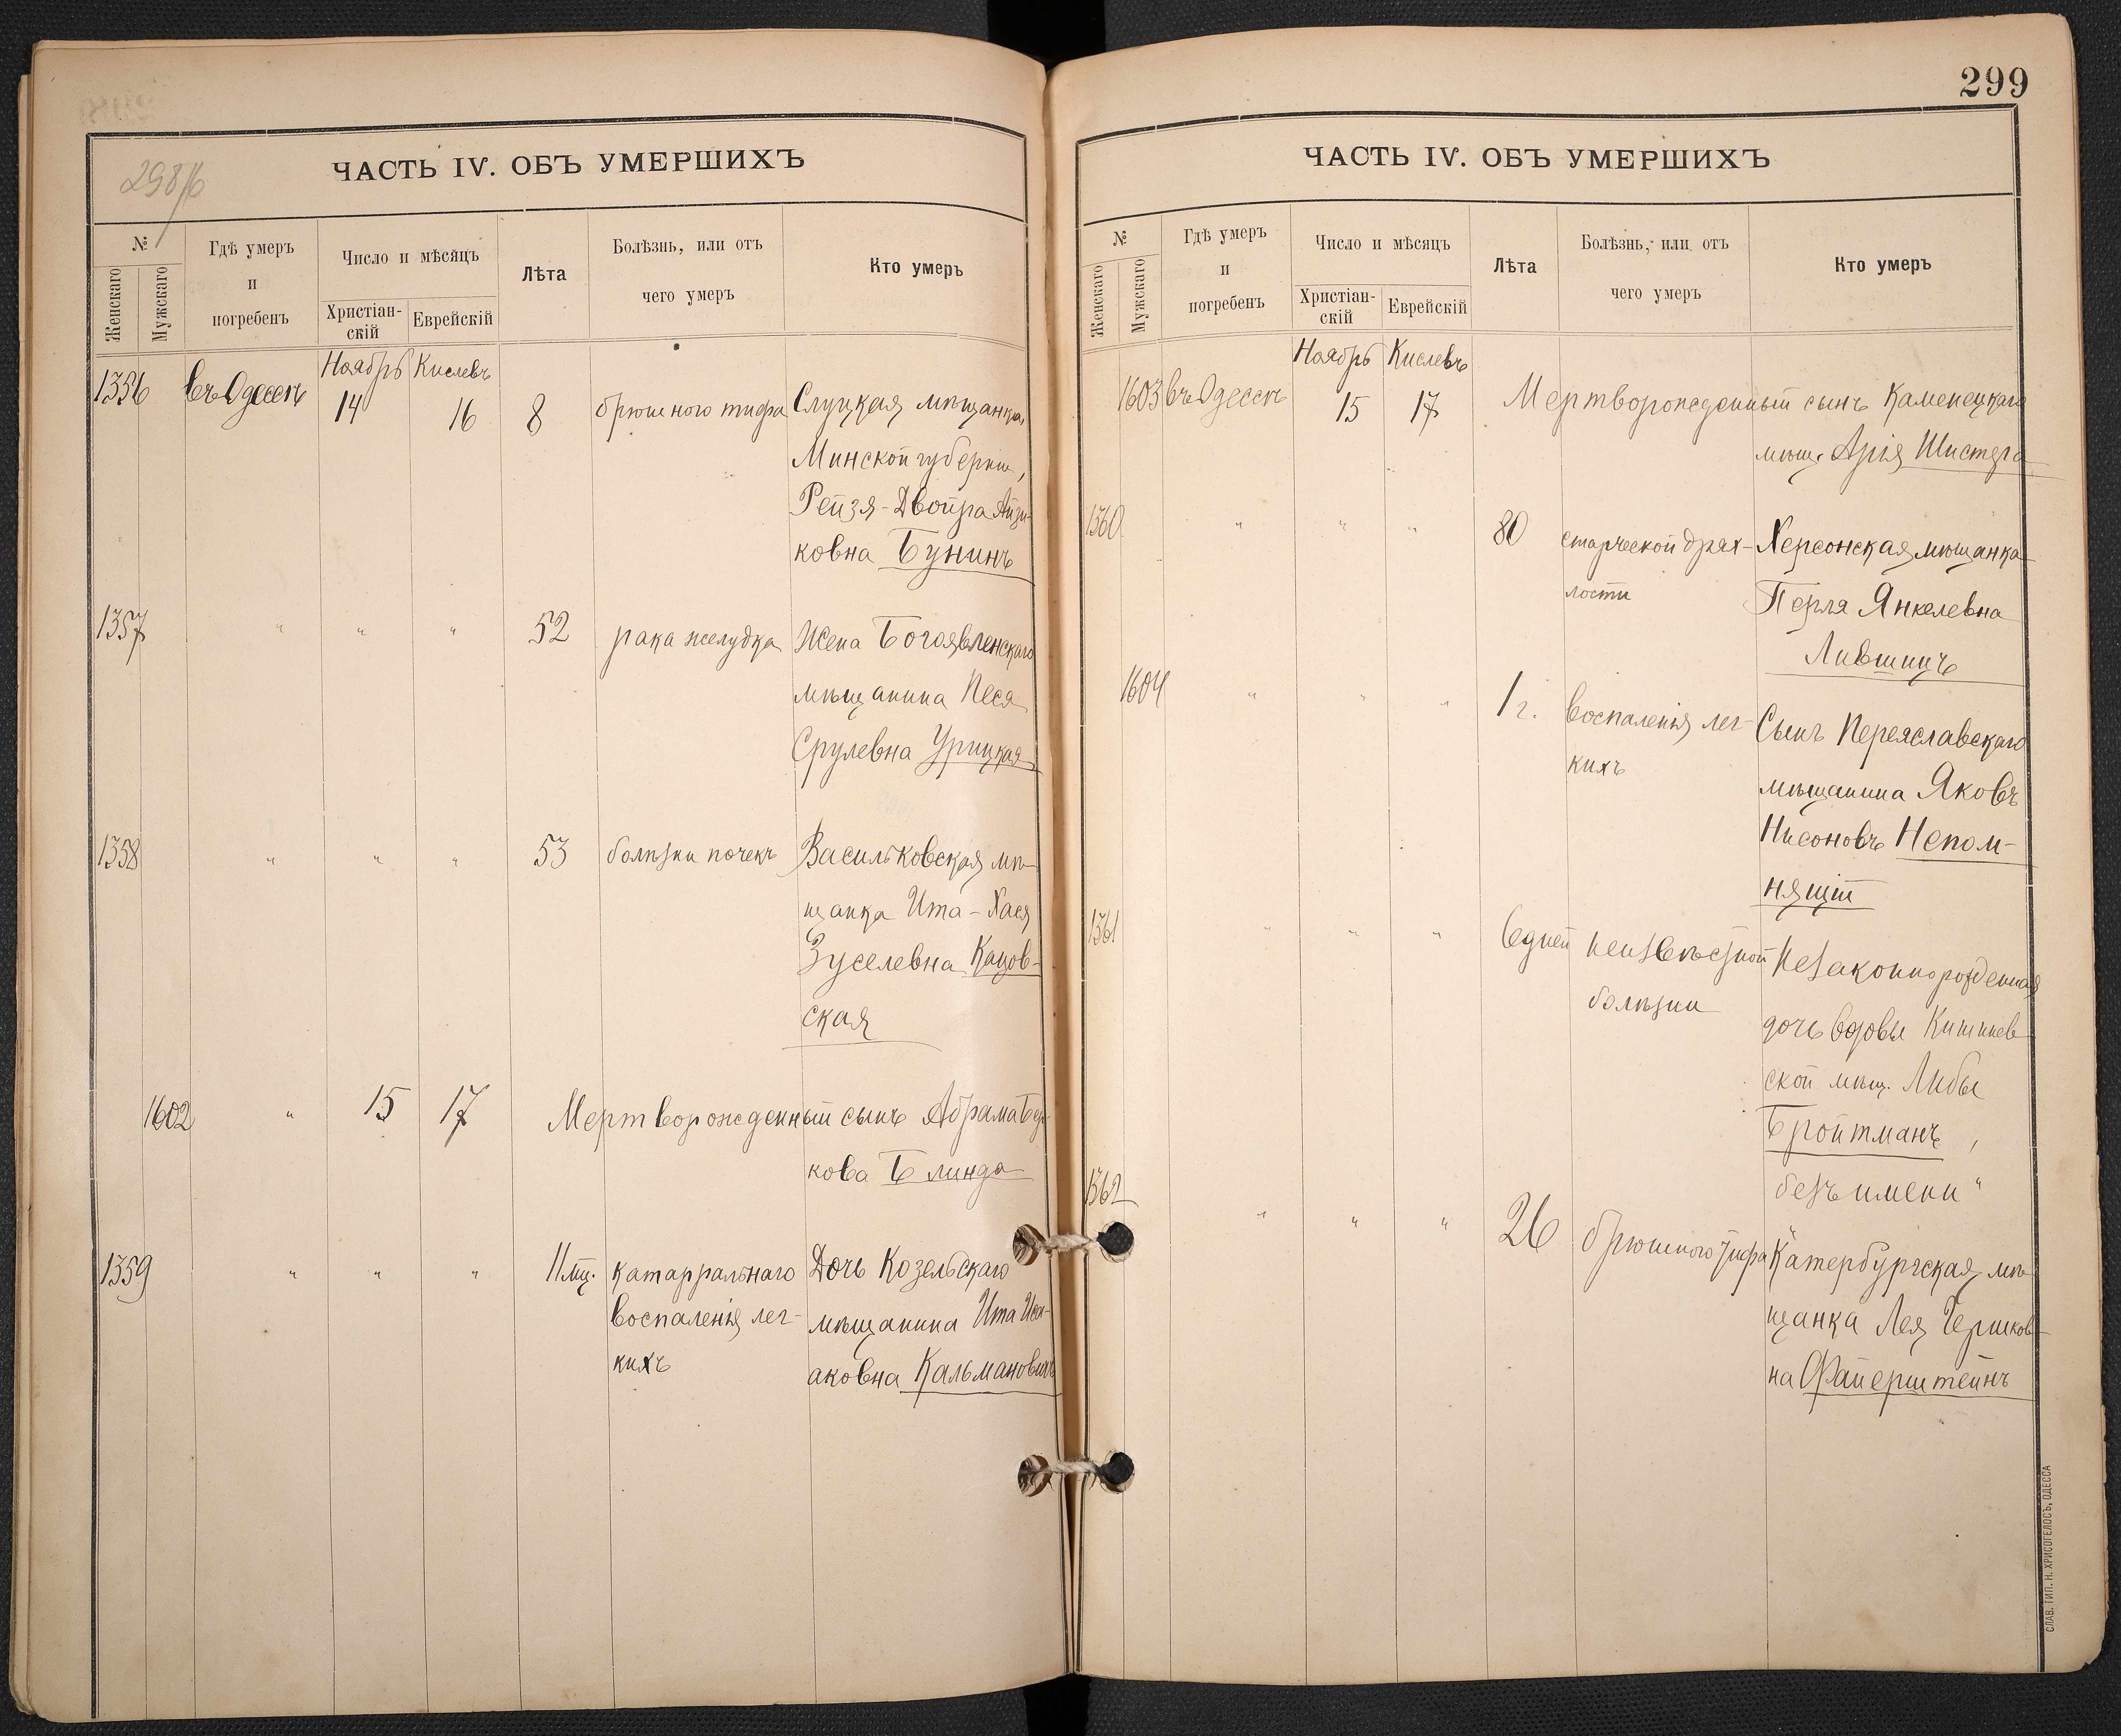 298 об
ЧАСТЬ IV. ОБЪ УМЕРШИХЪ
№
Женскаго
Мужскаго
Гдѣ умеръ
и
погребенъ
Число и мѣсяцъ
Христіан-
скій
Еврейскій
Лѣта
Болѣзнь, или отъ
чего умеръ
Кто умеръ
Ноябрь Кислевъ
1356 въ Одессѣ 14 16 8 брюшного тифа Слуцкая мѣщанка
Минской губерніи,
Рейзя-Двойра Айзи-
ковна Бунинъ
1357 " " " 52 рака желудка Жена Богоявленскаго
мѣщанина Песя
Срулевна Урицкая
1358 " " " 53 болѣзни почекъ Васильковская мѣ-
щанка Ита-Хася
Зуселевна Кацов-
ская
1602 " 15 17 Мертворожденный сынъ Абрама Бер-
кова Блинда
1359 " " " 11 мц. катарральнаго Дочь Козельскаго
воспаленія лег- мѣщанина Ита Иса-
кихъ аковна Кальмановичъ
299
ЧАСТЬ IV. ОБЪ УМЕРШИХЪ
№
Женскаго
Мужскаго
Гдѣ умеръ
и
погребенъ
Число и мѣсяцъ
Христіан-
скій
Еврейскій
Лѣта
Болѣзнь, или отъ
чего умеръ
Кто умеръ
Ноябрь Кислевъ
1603 въ Одессѣ 15 17 Мертворожденный сынъ Каменецкаго
мѣщ. Арія Шистера
1360 " " " 80 старческой дрях- Херсонская мѣщанка
лости Перля Янкелевна
Лившицъ
1604 " " " 1 г. воспаленія лег- Сынъ Переяславскаго
кихъ мѣщанина Яковъ
Нисоновъ Непом-
нящій
1361 " " " 6 дней неизвѣстной Незаконнорожденная
болѣзни дочь вдовы Кишинев-
ской мѣщ. Либы
Бройтманъ,
безъ имени"
1362 " " " 26 брюшного тифа Катербургская мѣ-
щанка Лея Гершков-
на Файерштейнъ
СЛАВ. ТИП. Н. ХРИСОГЕЛОСЪ, ОДЕССА